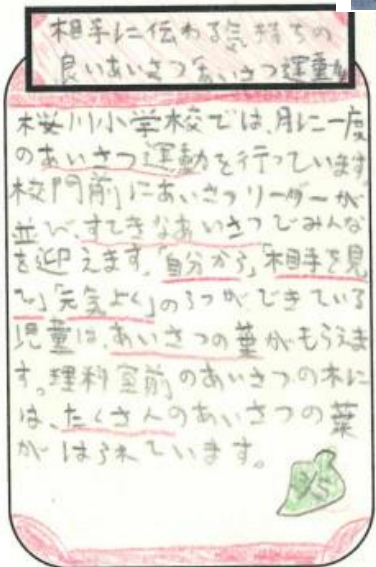 相手に伝わる気持ちの
良いあいさつ あいさつ運動
桜川小学校では、月に一度
のあいさつ運動を行っています。
校門前にあいさつリーダーが
並び、すてきなあいさつでみんな
を迎えます。「自分から」「相手を見
て」「元気よく」の3つができている
児童は、あいさつの葉がもらえま
す。理科室前のあいさつの木に
は、たくさんのあいさつの葉
がはられています。